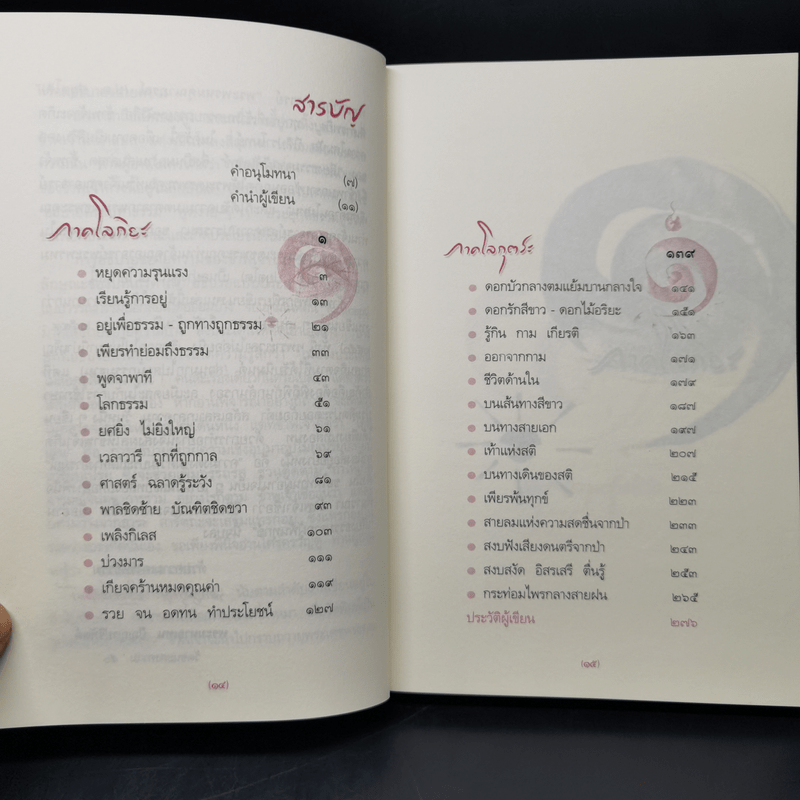 สารบัญ
คำอนุโมทนา (๗)
คำนำผู้เขียน (๑๑)
ภาคโลกิยะ ๑
หยุดความรุนแรง ๓
เรียนรู้การอยู่ ๑๓
อยู่เพื่อธรรม - ถูกทางถูกธรรม ๒๑
เพียรทำย่อมถึงธรรม ๓๓
พูดจาพาที ๔๓
โลกธรรม ๕๑
ยศยิ่ง ไม่ยิ่งใหญ่ ๖๑
เวลาวารี ถูกที่ถูกกาล ๖๙
ศาสตร์ ฉลาดรู้ระวัง ๘๑
พาลชิดซ้าย บัณฑิตชิดขวา ๙๓
เพลิงกิเลส ๑๐๓
บ่วงมาร ๑๑๑
เกียจคร้านหมดคุณค่า ๑๑๙
รวย จน อดทน ทำประโยชน์ ๑๒๗
(๑๔)
ภาคโลกุตระ ๑๓๙
ดอกบัวกลางตมแย้มบานกลางใจ ๑๔๑
ดอกรักสีขาว - ดอกไม้อริยะ ๑๕๑
รู้กิน กาม เกียรติ ๑๖๓
ออกจากกาม ๑๗๑
ชีวิตด้านใน ๑๗๙
บนเส้นทางสีขาว ๑๘๗
บนทางสายเอก ๑๙๗
เท้าแห่งสติ ๒๐๗
บนทางเดินของสติ ๒๑๕
เพียรพ้นทุกข์ ๒๒๓
สายลมแห่งความสดชื่นจากป่า ๒๓๓
สงบฟังเสียงดนตรีจากป่า ๒๔๓
สงบสงัด อิสรเสรี ตื่นรู้ ๒๕๓
กระท่อมไพรกลางสายฝน ๒๖๕
ประวัติผู้เขียน ๒๗๖
(๑๕)